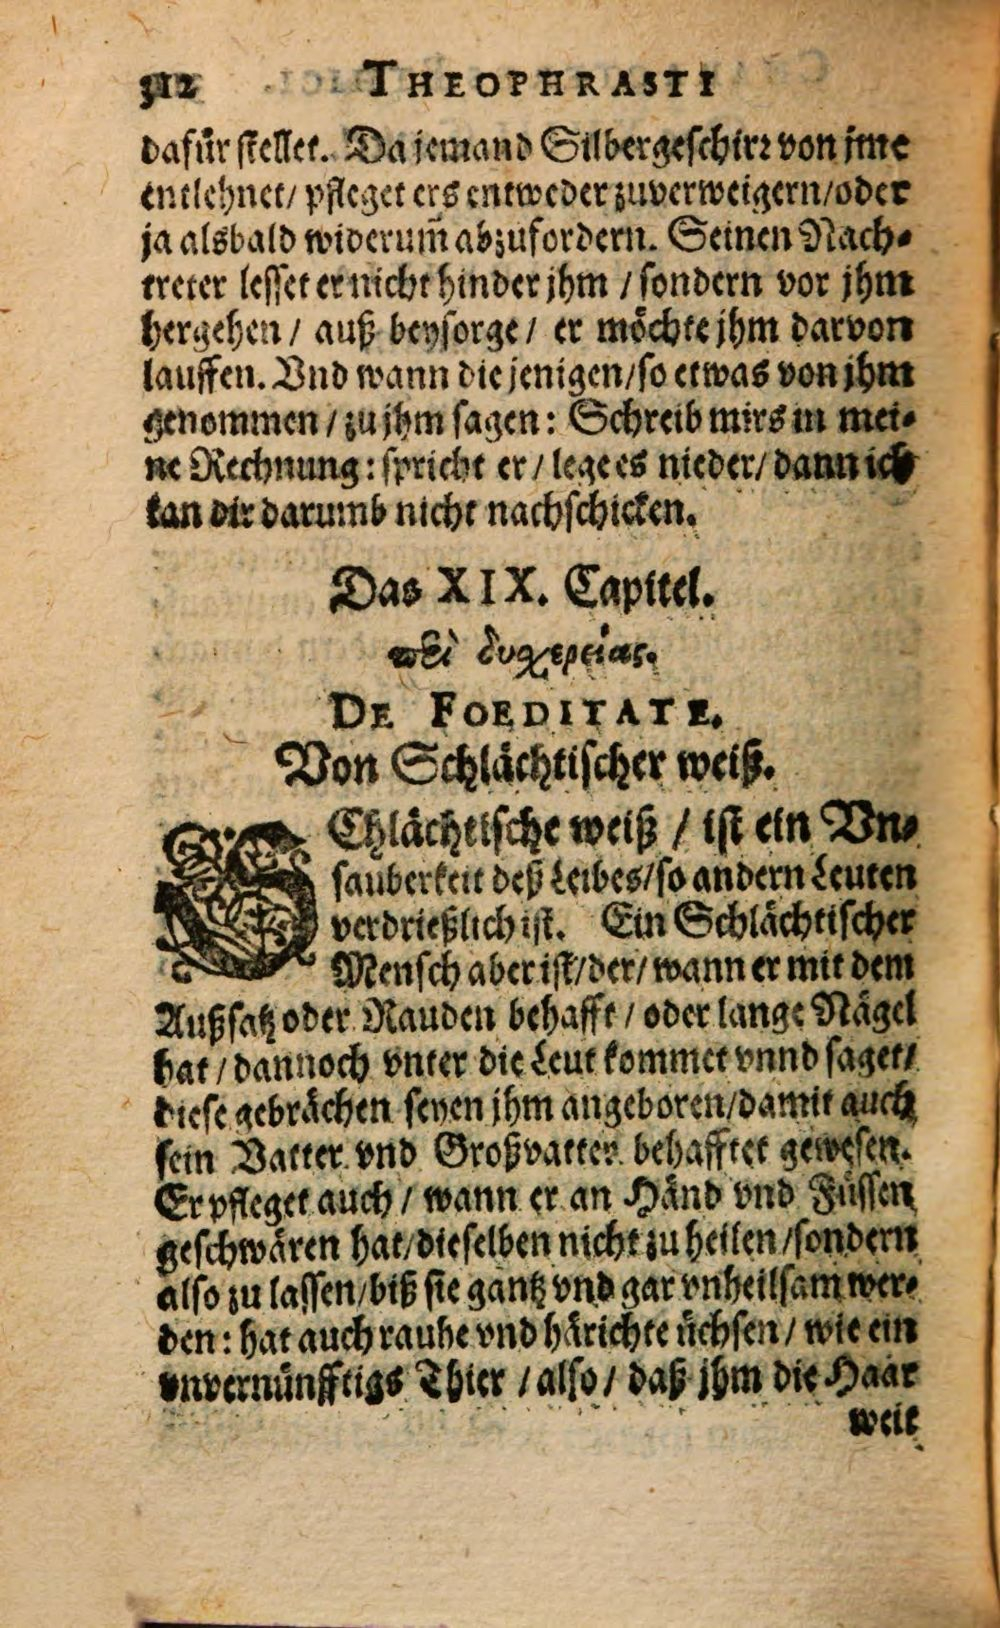 312 THEOPHRASTI
dafür stellet. Da jemand Silbergeschirr von jme
entlehnet/ pfleget ers entweder zuverweigern/oder
ja alsbald widerum̃ abzufordern. Seinen Nach-
treter lesset er nicht hinder jhm / sondern vor jhm
hergehen / auß beysorge / er möchte jhm darvon
lauffen. Vnd wann die jenigen/so etwas von jhm
genommen / zu jhm sagen: Schreib mirs in mei-
ne Rechnung: spricht er / lege es nieder/ dann ich
kan dir darumb nicht nachschicken.
Das XIX. Capittel.
περὶ δυχερείας.
DE FOEDITATE.
Von Schlächtischer weiß.
SChlächtische weiß / ist ein Vn-
sauberkeit deß Leibes/so andern Leuten
verdrießlich ist. Ein Schlächtischer
Mensch aber ist/der/wann er mit dem
Außsatz oder Rauden behafft / oder lange Nägel
hat / dannoch vnter die Leut kommet vnnd saget/
diese gebrächen seyen jhm angeboren/damit auch
sein Vatter vnd Großvatter behafftet gewesen.
Er pfleget auch / wann er an Händ vnd Füssen
geschwären hat/dieselben nicht zu heilen/sondern
also zu lassen/biß sie gantz vnd gar vnheilsam wer-
den: hat auch rauhe vnd härichte üchsen / wie ein
vnvernünfftigs Thier / also / daß jhm die Haar
weit